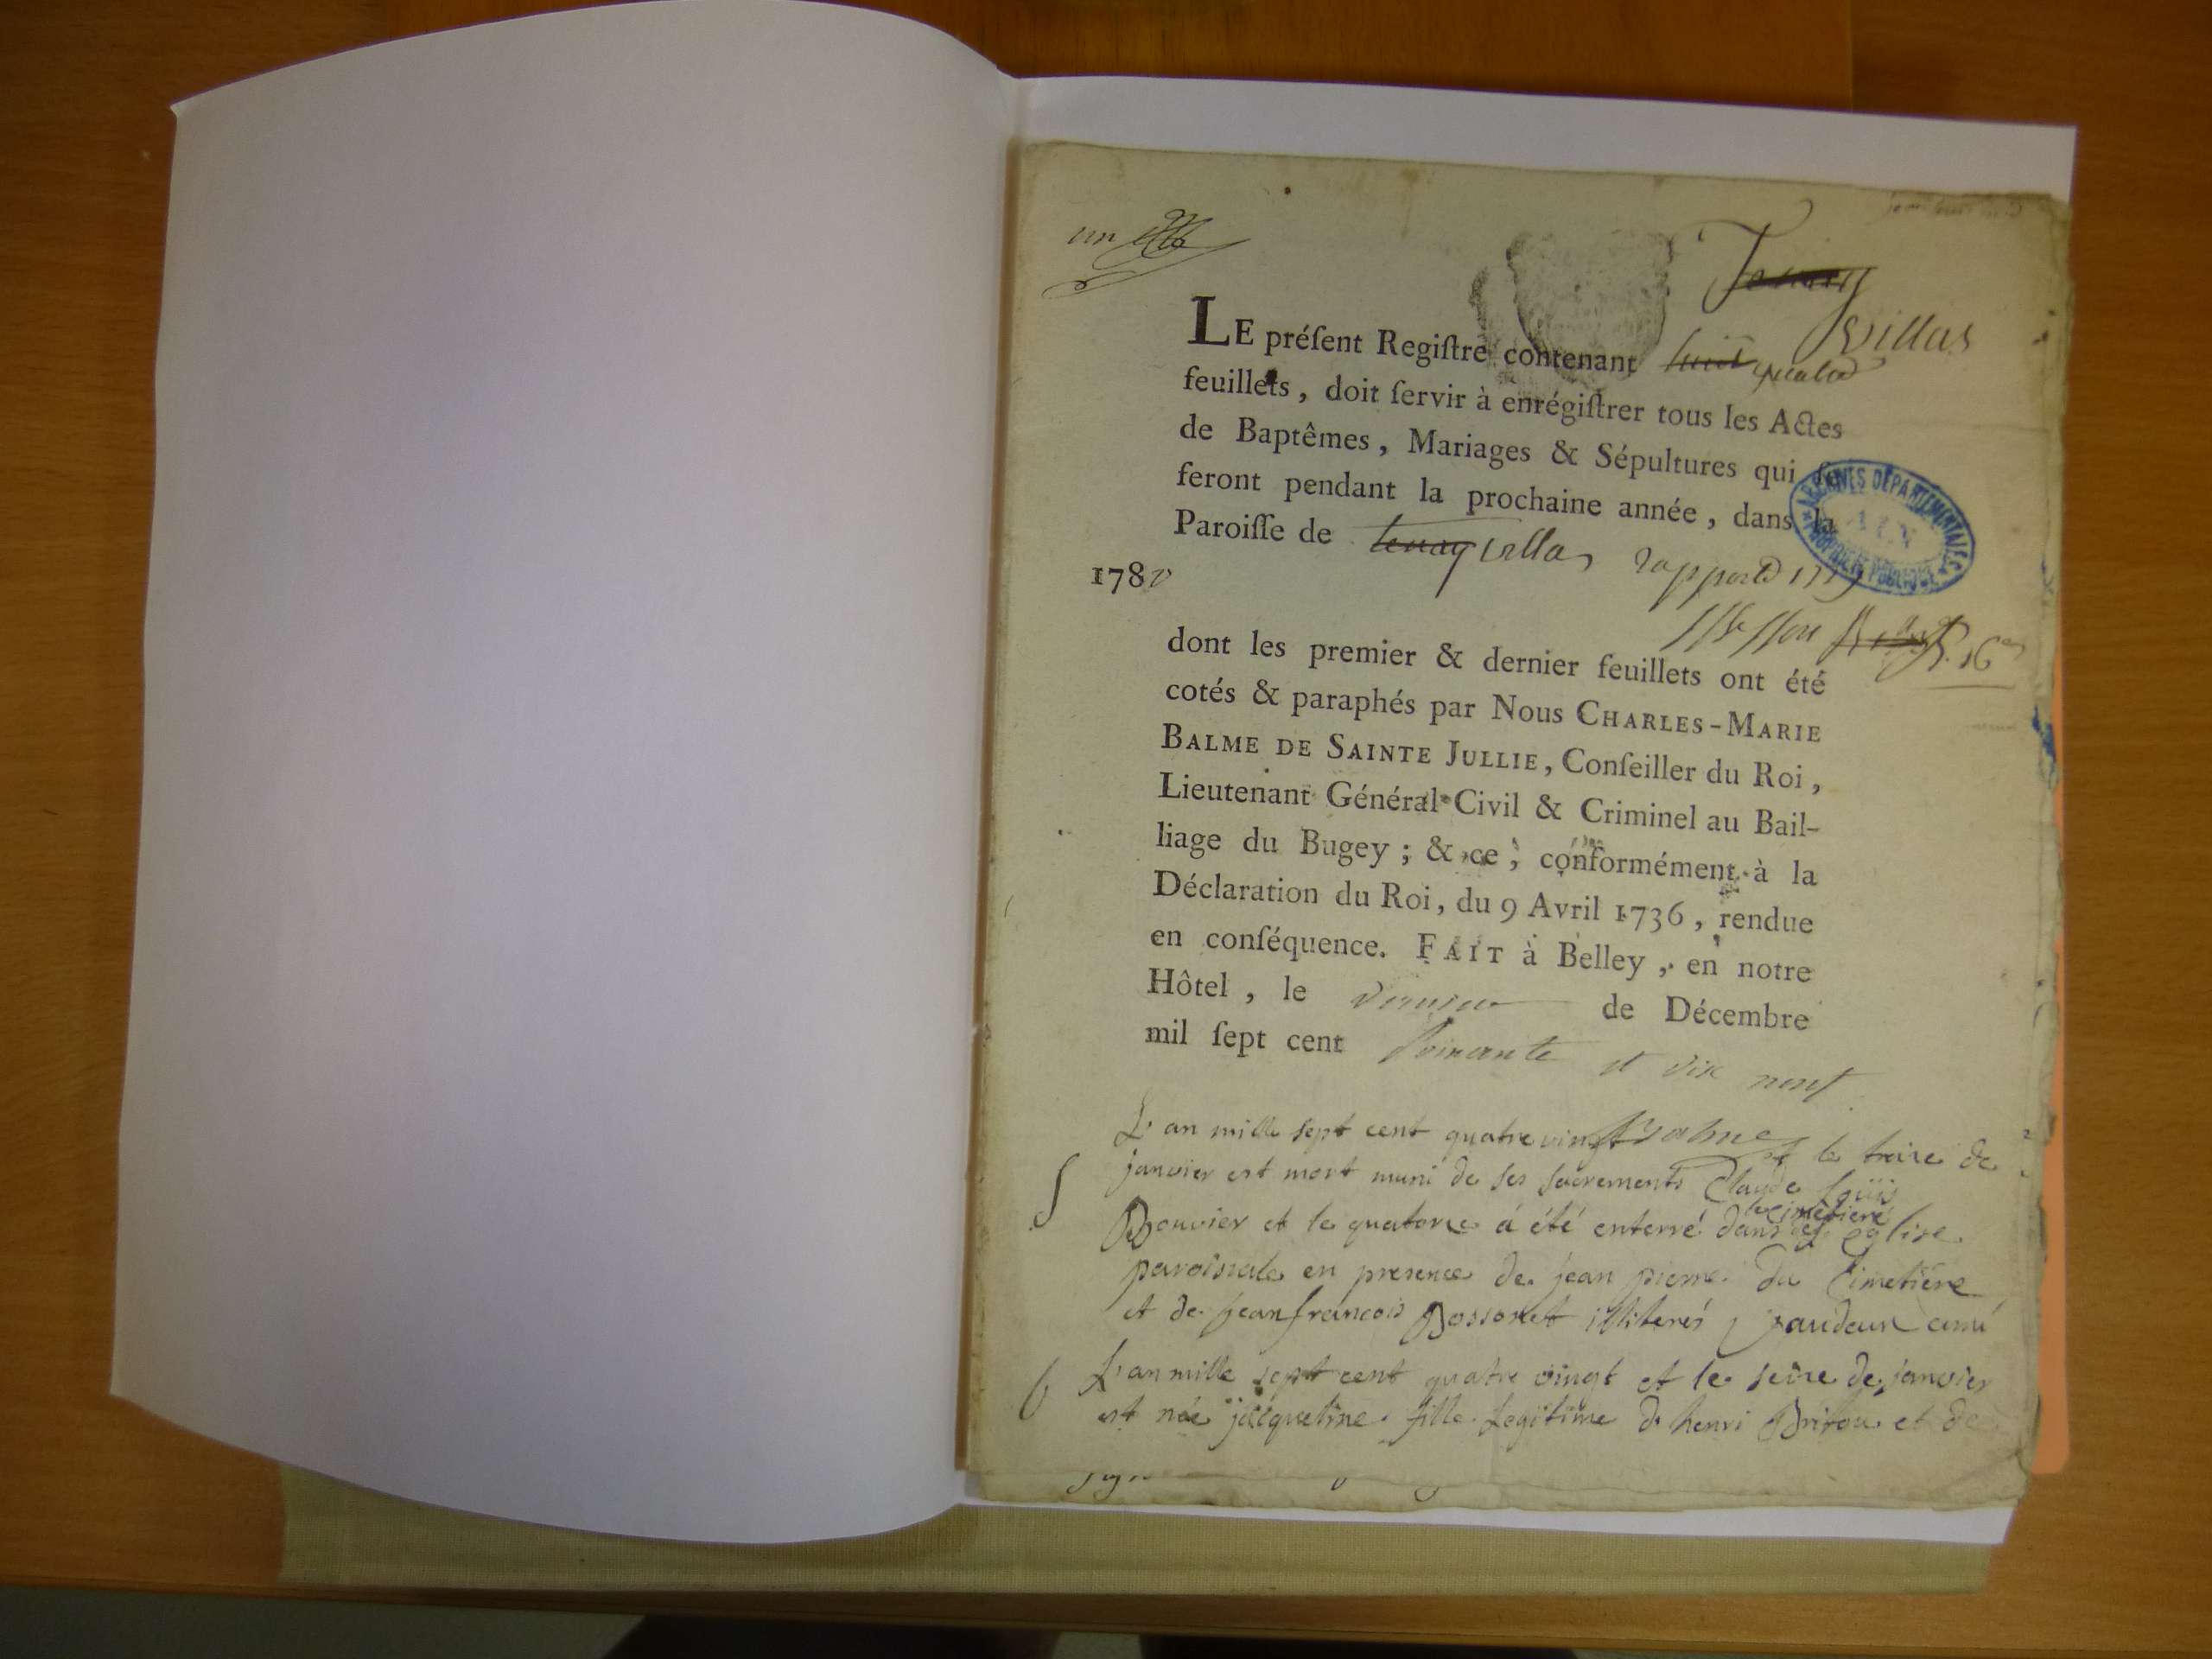 un
Villas
LE préſent Regiſtre contenant huit quatre
feuillets, doit ſervir à enrégiſtrer tous les Actes
de Baptêmes, Mariages & Sépultures qui ſe
feront pendant la prochaine année, dans la
Paroiſſe de tenay villas rapporté
ARCHIVES DÉPARTEMENTALES
AIN
PROPRIÉTÉ PUBLIQUE
1780
dont les premier & dernier feuillets ont été
cotés & paraphés par Nous CHARLES-MARIE
BALME DE SAINTE JULLIE, Conſeiller du Roi,
Lieutenant Général Civil & Criminel au Bail-
liage du Bugey; & ce, conformément à la
Déclaration du Roi, du 9 Avril 1736, rendue
en conſéquence. FAIT à Belley, en notre
Hôtel, le dernier de Décembre
mil ſept cent soixante et dix neuf
Balme
L'an mille sept cent quatre vingt et le treize de
janvier est mort muni de ses sacrements Claude Loüis
Bouvier et le quatorze á été enterré dans le cimetiere église
S
paroissiale en presence de jean pierre du Cimetière
et de jean francois Bossonet illiterés jaudeux curé
b L'an mille sept cent quatre vingt et le seize de janvier
est née jacqueline fille legitime de henri Brirou et de